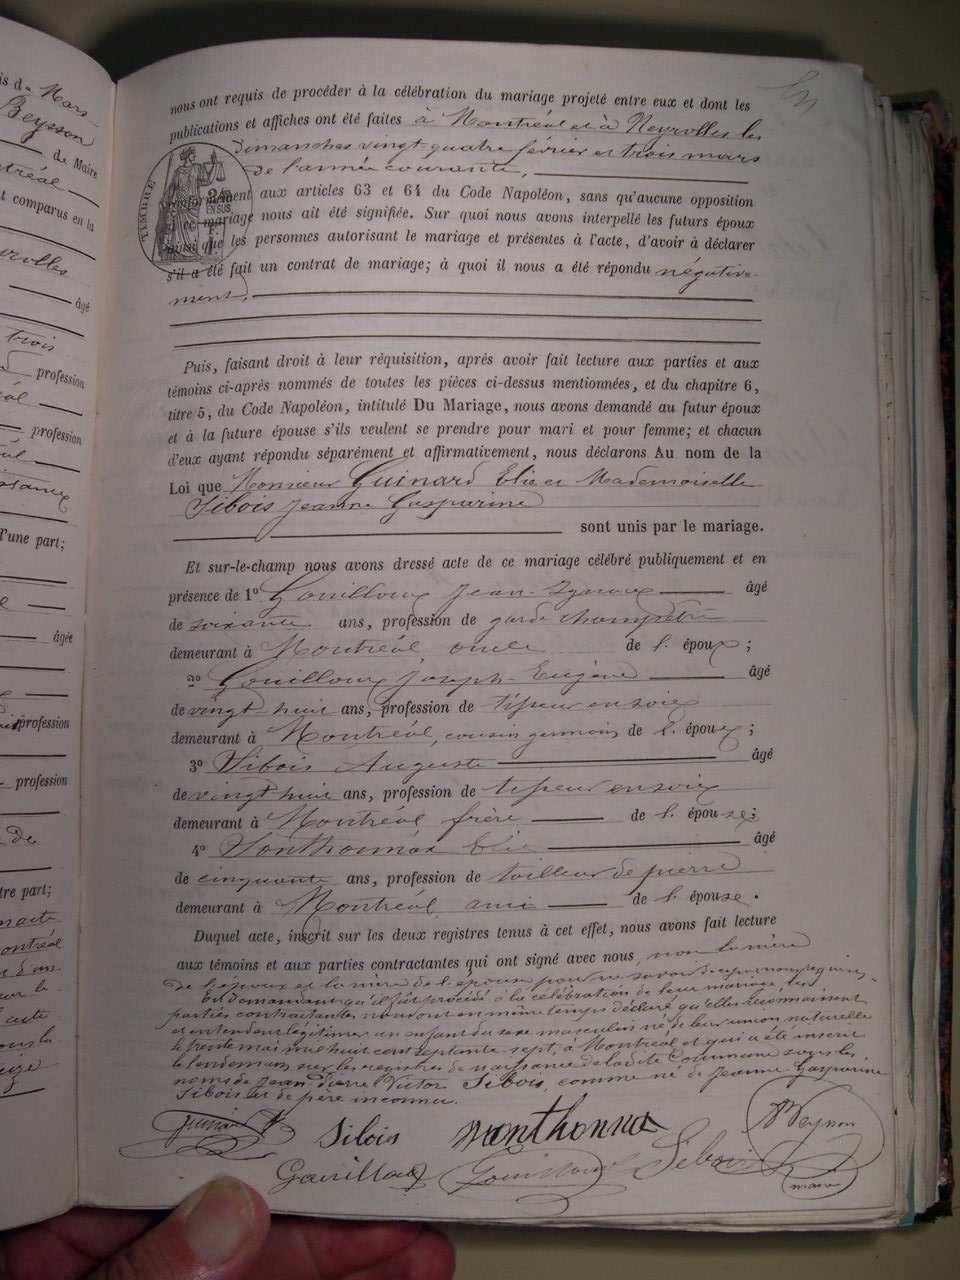 is de Mars
Beysson
de Maire
tréal
t comparus en la
yrolles
âgé
trois
profession
éal
profession
issance
l'une part;
âgée
profession
profession
de
tre part;
ontréal
nous ont requis de procéder à la célébration du mariage projeté entre eux et dont les
publications et affiches ont été faites à Montréal et à Neyrolles les
dimanches vingt-quatre février et trois mars
de l'année courante,
TIMBRE
2/10
EN SUS
conformément aux articles 63 et 64 du Code Napoléon, sans qu'aucune opposition
à ce mariage nous ait été signifiée. Sur quoi nous avons interpellé les futurs époux
ainsi que les personnes autorisant le mariage et présentes à l'acte, d'avoir à déclarer
s'il a été fait un contrat de mariage; à quoi il nous a été répondu négative-
ment,
Puis, faisant droit à leur réquisition, après avoir fait lecture aux parties et aux
témoins ci-après nommés de toutes les pièces ci-dessus mentionnées, et du chapitre 6,
titre 5, du Code Napoléon, intitulé Du Mariage, nous avons demandé au futur époux
et à la future épouse s'ils veulent se prendre pour mari et pour femme; et chacun
d'eux ayant répondu séparément et affirmativement, nous déclarons Au nom de la
Loi que Monsieur Guinard Elie et Mademoiselle
Sibois Jeanne Gasparine
sont unis par le mariage.
Et sur-le-champ nous avons dressé acte de ce mariage célébré publiquement et en
présence de 1º Gouilloux Jean- âgé
de soixante ans, profession de garde champêtre
demeurant à Montréal, oncle de l. époux;
2º Gouilloux Joseph-Eugène âgé
de vingt-huit ans, profession de tisseur en soie
demeurant à Montréal, cousin germain de l. époux;
3º Sibois Auguste âgé
de vingt huit ans, profession de tisseur en soie
demeurant à Montréal frère de l. épouse;
4º Elie âgé
de cinquante ans, profession de tailleur de pierre
demeurant à Montréal, ami de l. épouse.
Duquel acte, inscrit sur les deux registres tenus à cet effet, nous avons fait lecture
aux témoins et aux parties contractantes qui ont signé avec nous, non la mère
de l'époux et la mère de l'épouse pour ne savoir de ce par nous requises.
En demandant qu'il fût procédé à la célébration de leur mariage, les
parties contractantes nous ont en même temps déclaré qu'elles reconnaissent
et entendent légitimer un enfant du sexe masculin né de leur union naturelle
le trente mai mil huit cent septante-sept, à Montréal et qui a été inscrit
le lendemain sur les registres de naissance de ladite Commune sous les
noms de Jean Pierre Victor Sibois, comme né de Jeanne Gasparine
Sibois et de père inconnu.
Guinard Sibois Monthonnax Beysson
Gouilloux Gouilloux Sibois maire